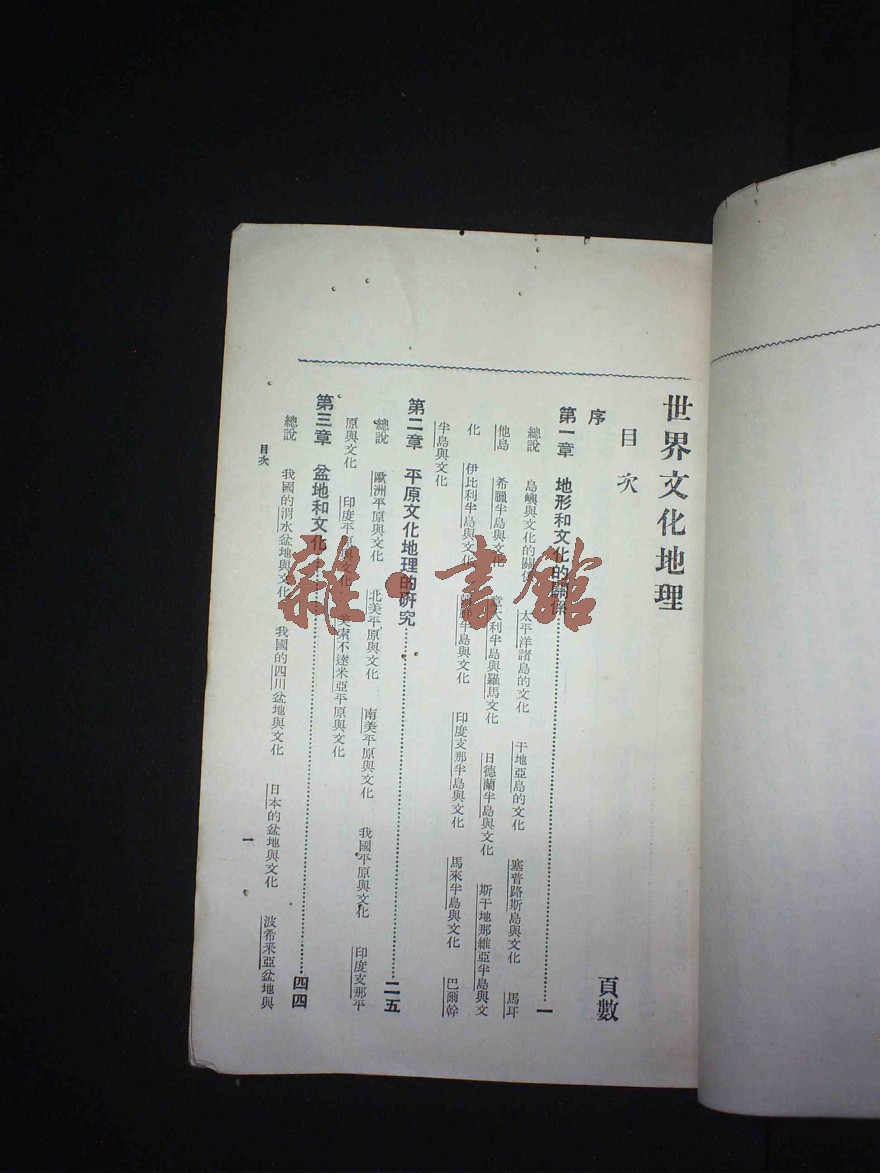 世界文化地理
目次
頁數
序
第一章 地形和文化的關係 一
總說 島嶼與文化的關係 太平洋諸島的文化 干地亞島的文化 塞普路斯島與文化 馬耳
他島 希臘半島與文化 意大利半島與羅馬文化 日德蘭半島與文化 斯干地那維亞半島與文
化 伊比利半島與文化 半島與文化 印度支那半島與文化 馬來半島與文化 巴爾幹
半島與文化
第二章 平原文化地理的研究 二五
總說 歐洲平原與文化 北美平原與文化 南美平原與文化 我國平原與文化 印度支那平
原與文化 印度平原與文化 美索不達米亞平原與文化
第三章 盆地和文化 四四
總說 我國的渭水盆地與文化 我國的四川盆地與文化 日本的盆地與文化 波希米亞盆地與
目次
一
雜·書館